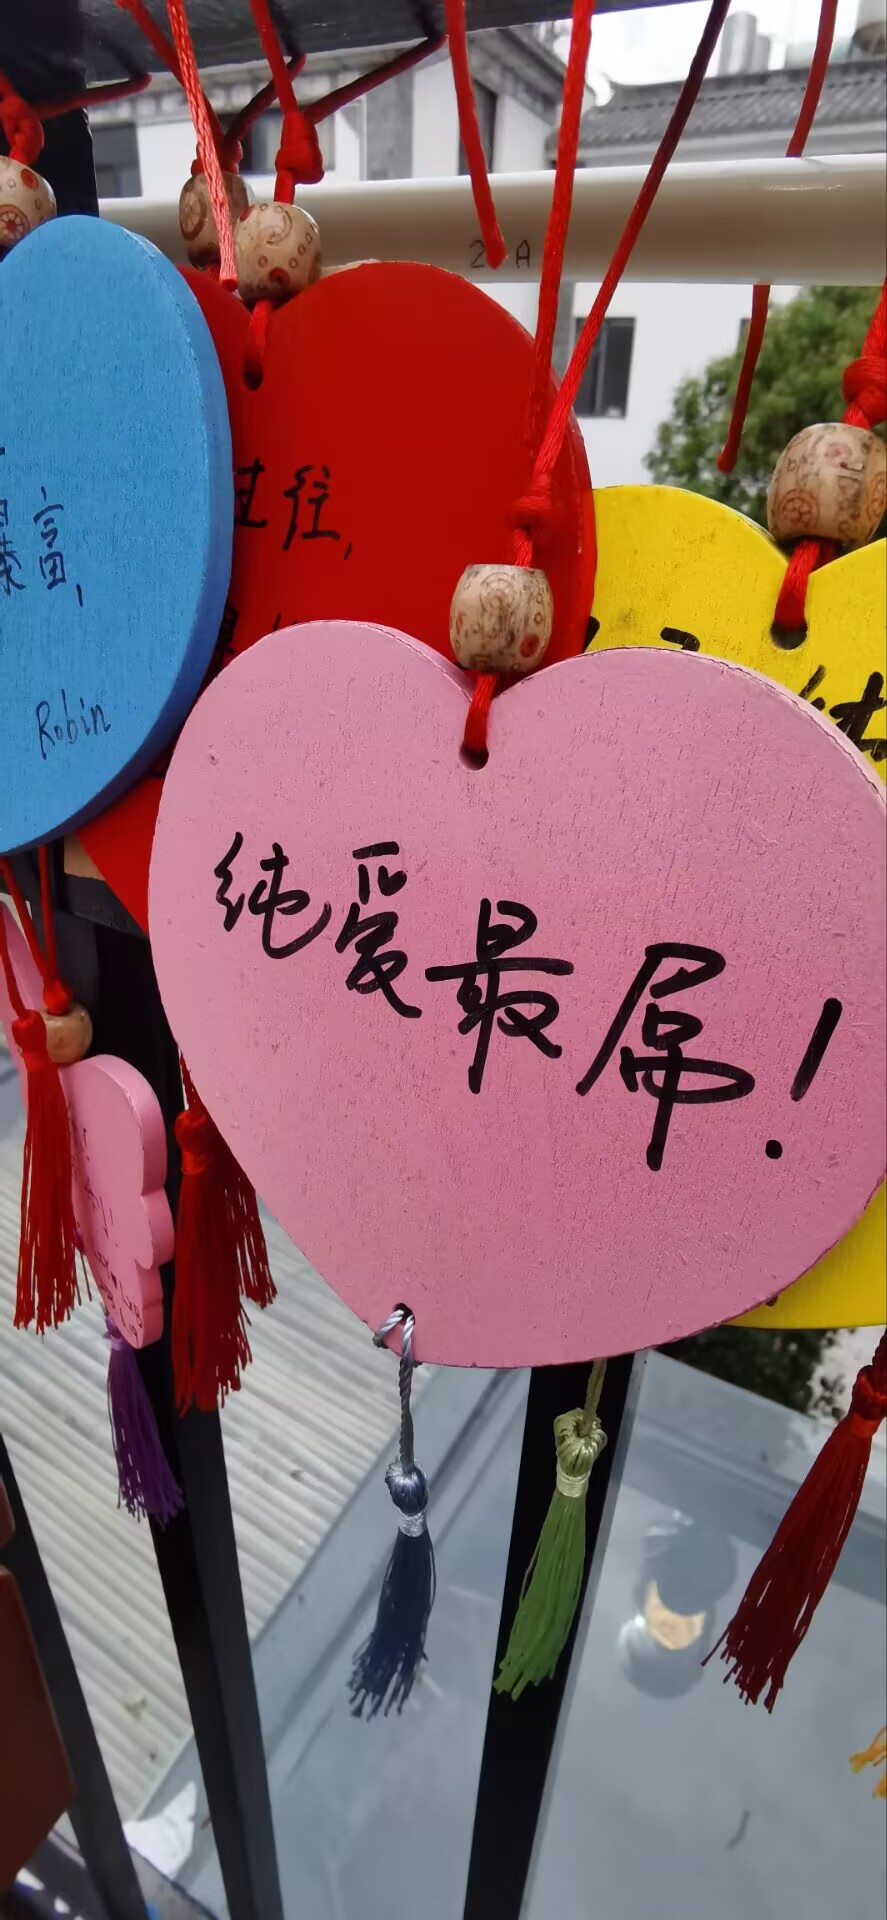 暴富,
Robin
过往,
纯爱最屌!
2 A